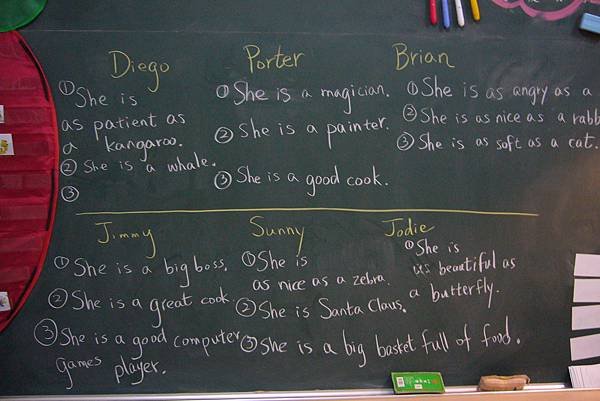 Diego
① She is
as patient as
a kangaroo.
② She is a whale.
③
Porter
① She is a magician.
② She is a painter.
③ She is a good cook.
Brian
① She is as angry as a
② She is as nice as a rabb
③ She is as soft as a cat.
Jimmy
① She is a big boss.
② She is a great cook.
③ She is a good computer
games player.
Sunny
① She is
as nice as a zebra.
② She is Santa Claus.
③ She is a big basket full of food.
Jodie
① She is
as beautiful as
a butterfly.